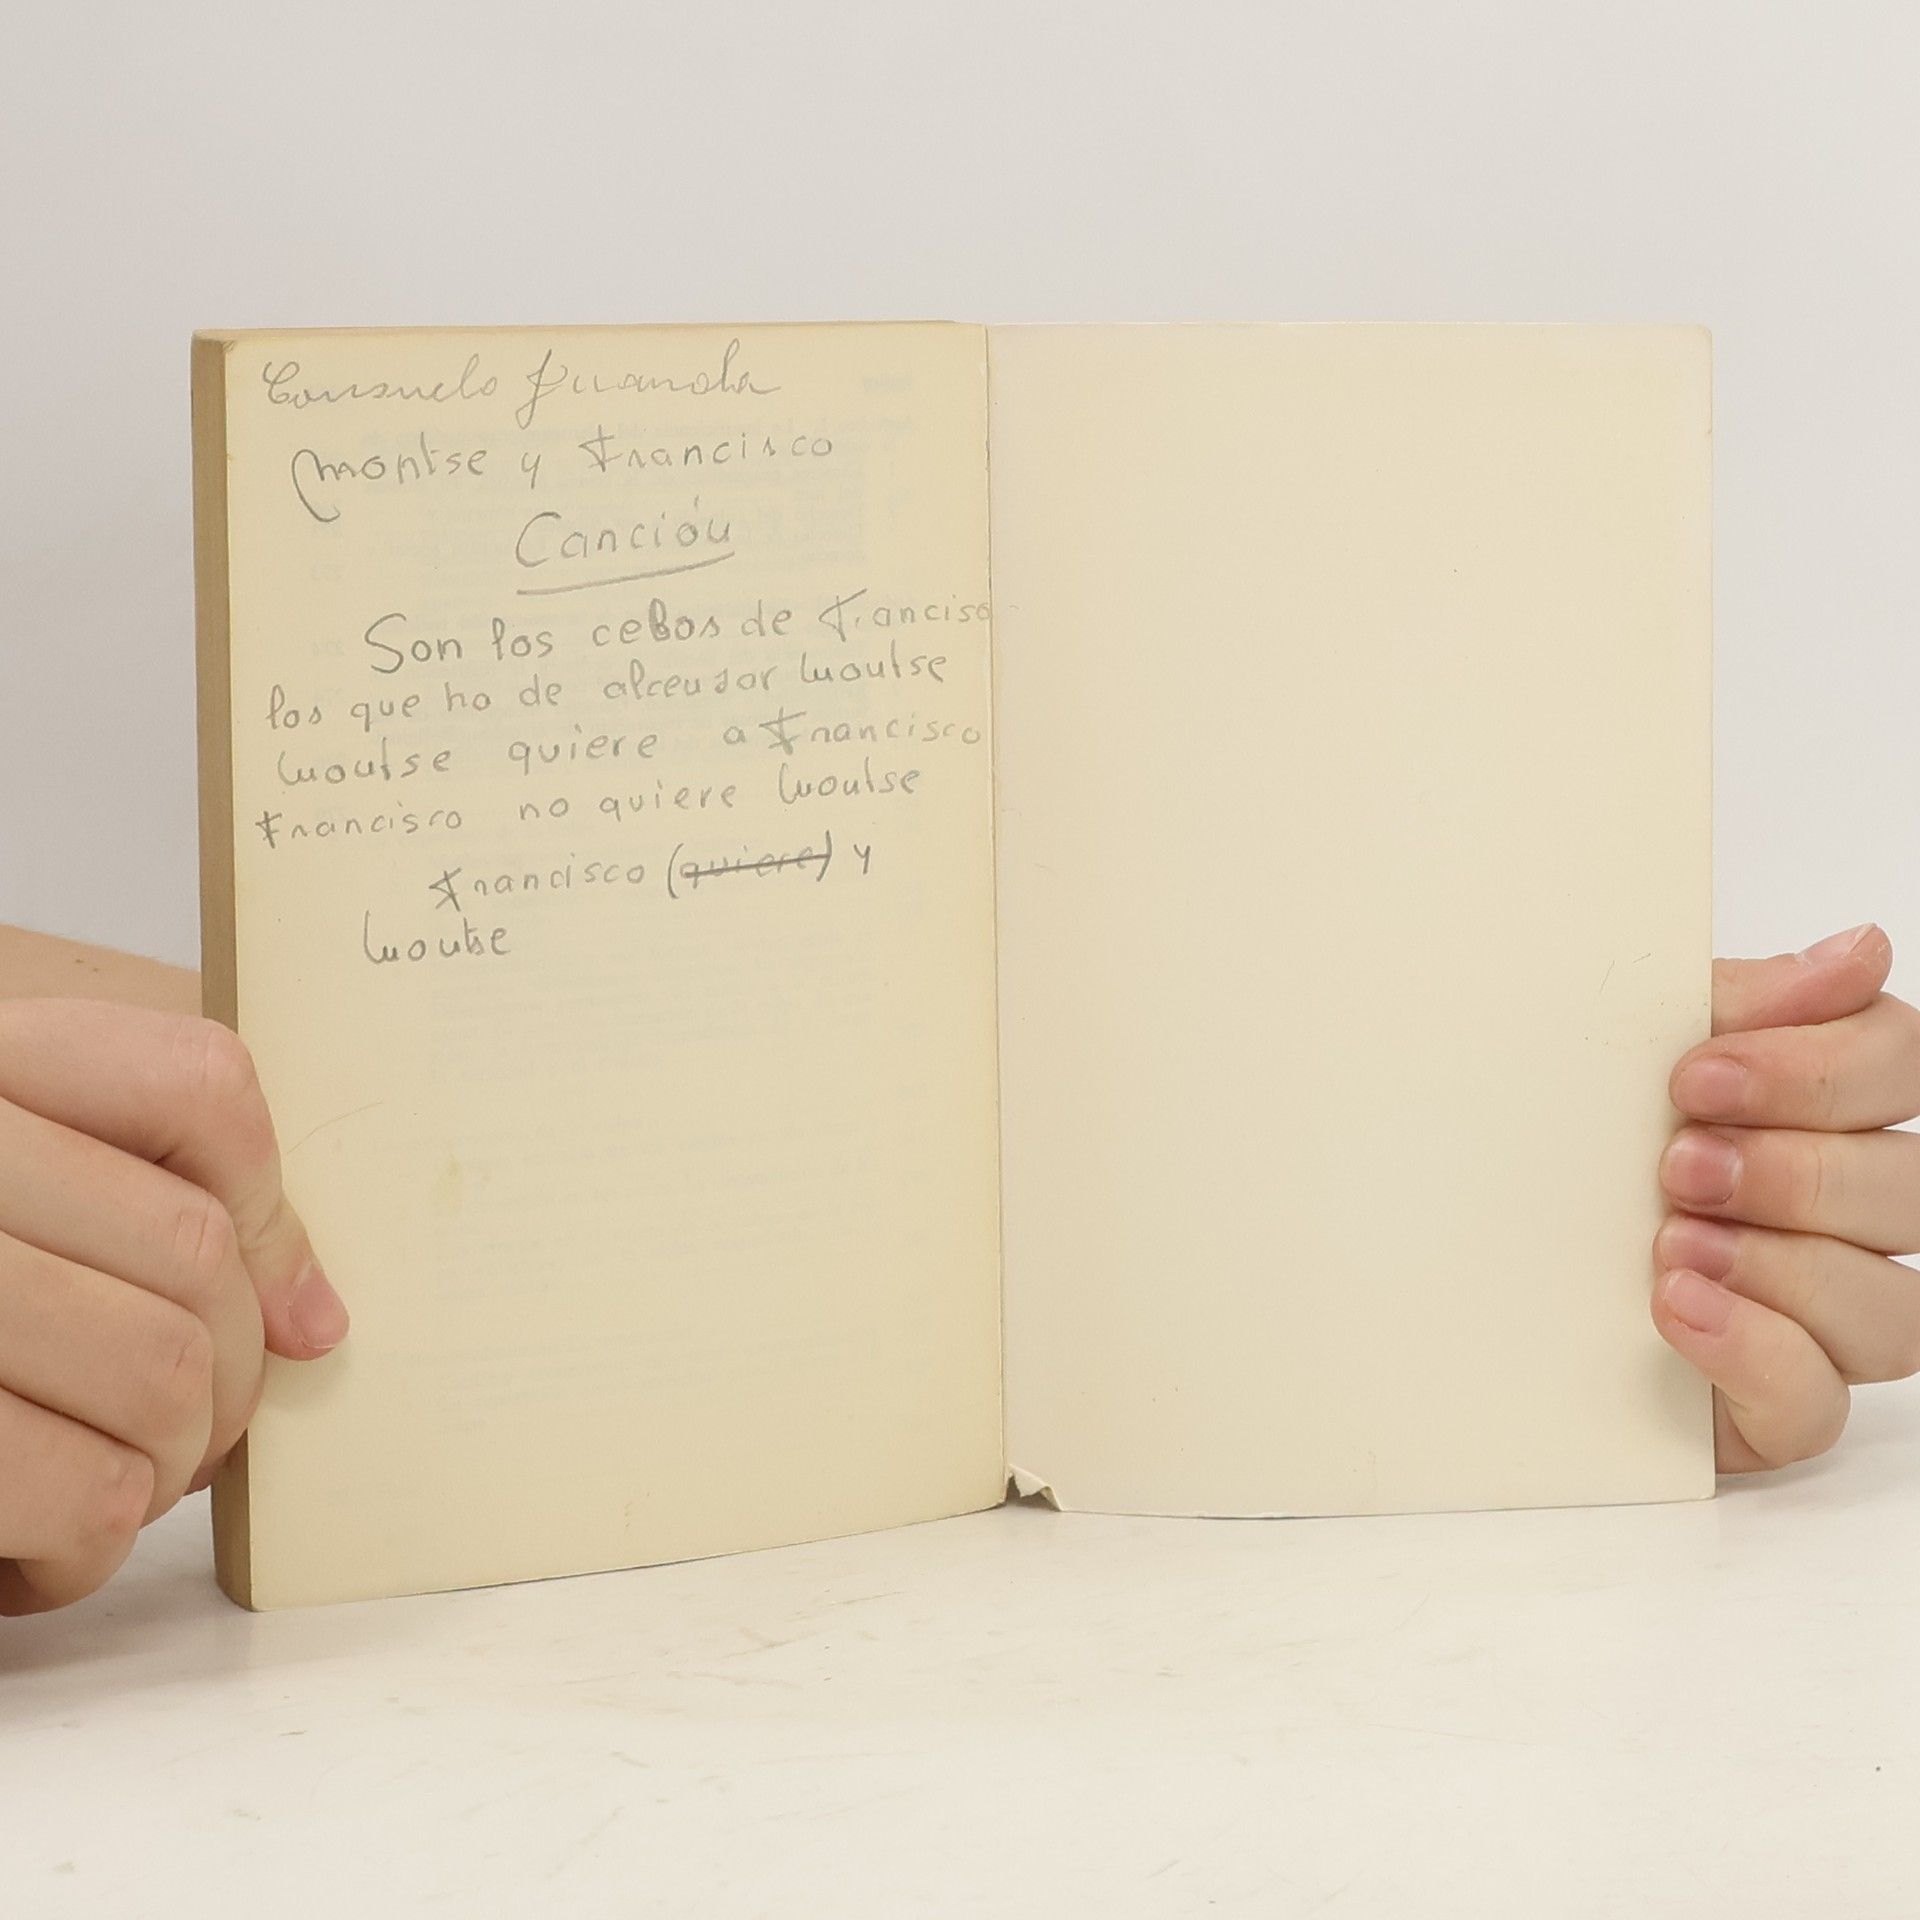 Consuelo Juanola
Montse y Francisco
Canción
Son los cebos de Francisco
los que ha de alcensar Montse
Montse quiere a Francisco
Francisco no quiere Montse
Francisco (quiere) y
Montse